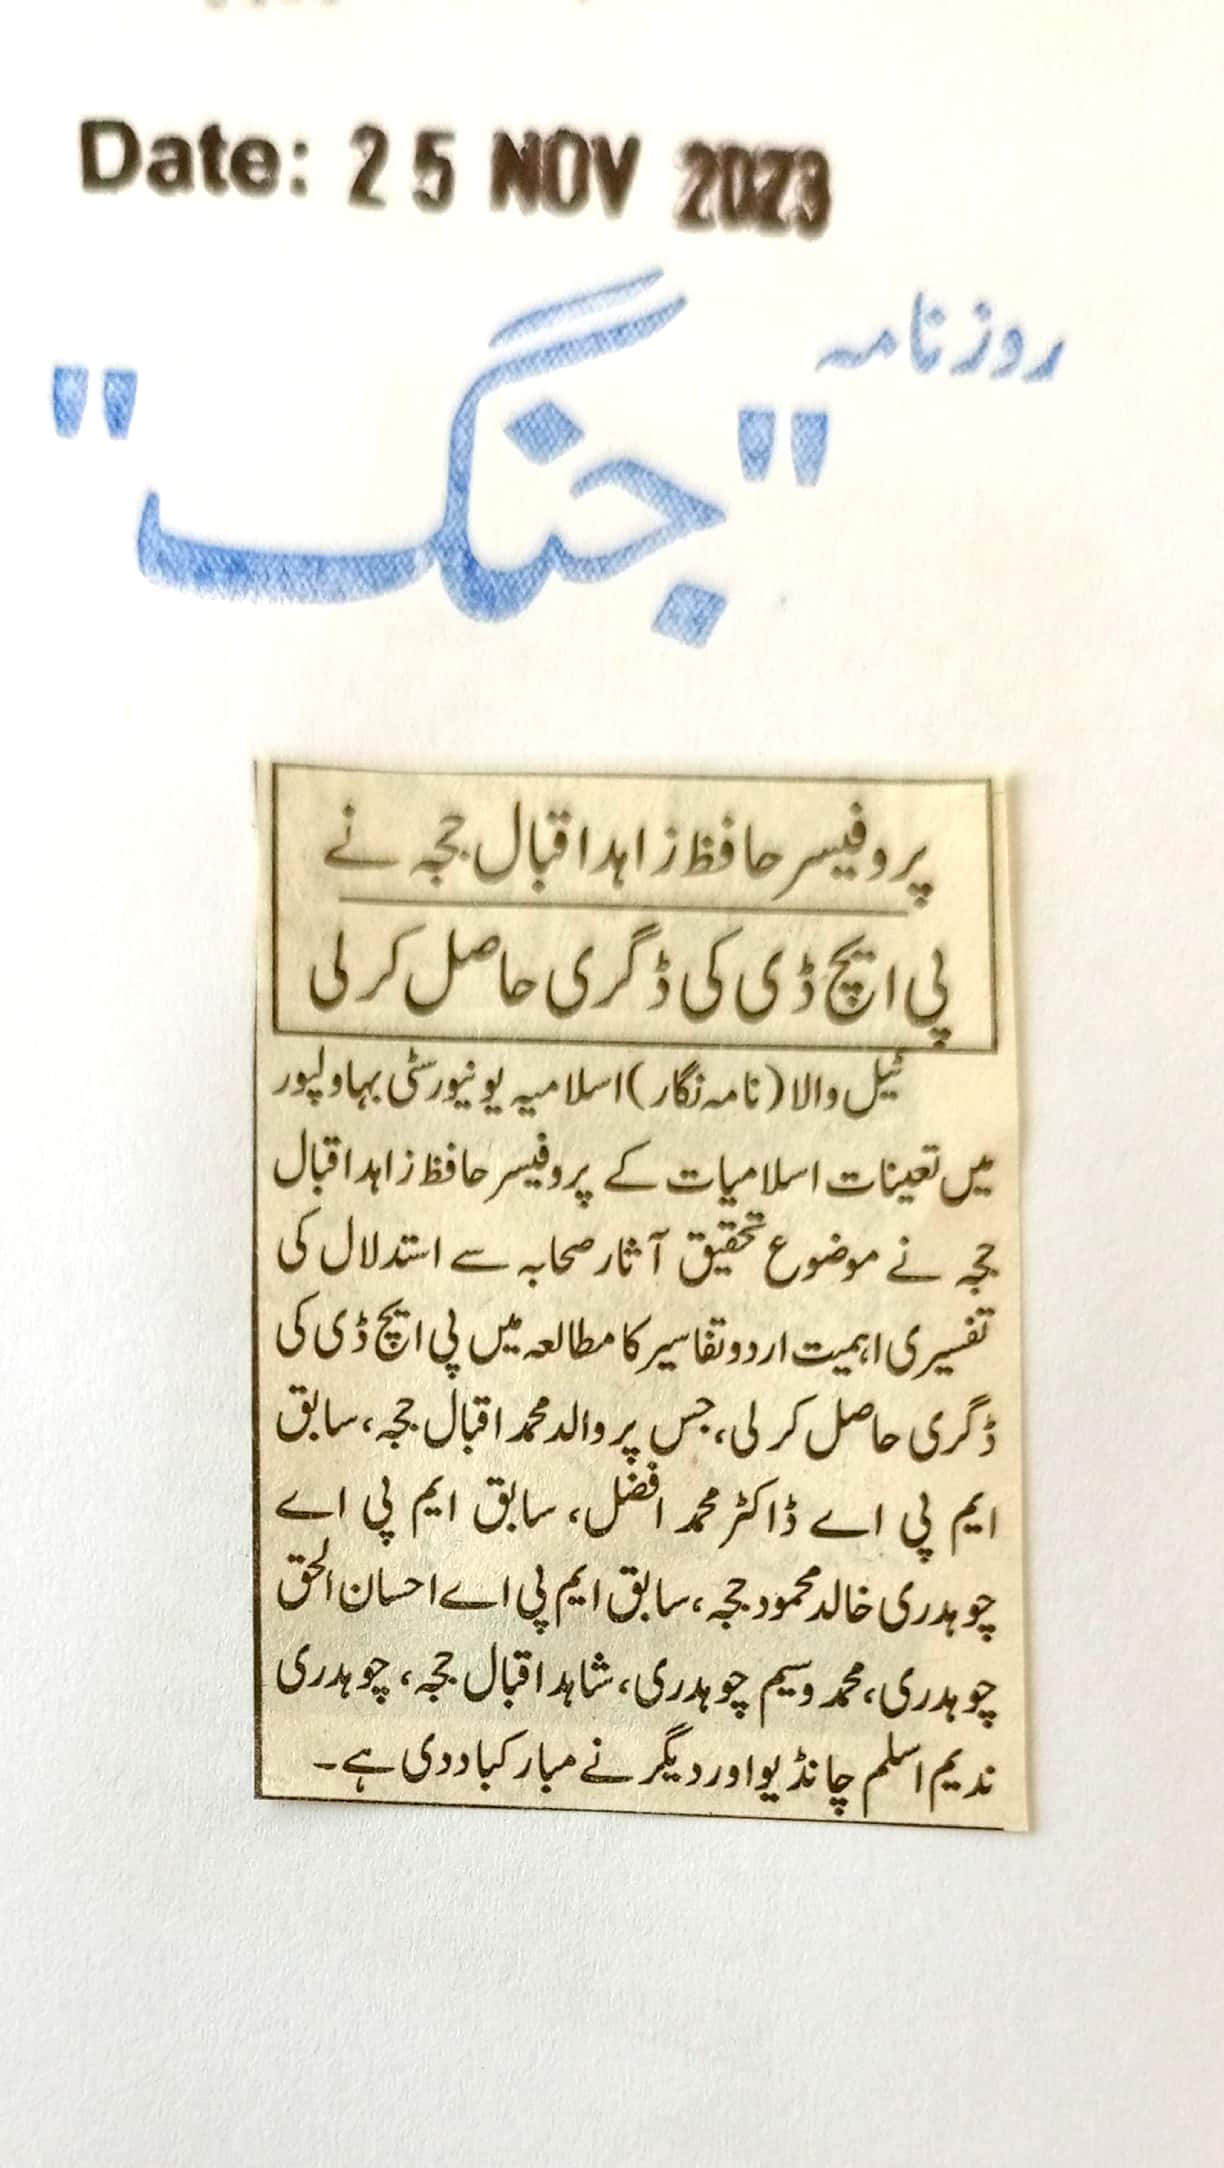 Date: 25 NOV 2023
روزنامہ
"جنگ"
پروفیسر حافظ زاہد اقبال ججہ نے
پی ایچ ڈی کی ڈگری حاصل کر لی
ٹیل والا (نامہ نگار) اسلامیہ یونیورسٹی بہاولپور
میں تعینات اسلامیات کے پروفیسر حافظ زاہد اقبال
ججہ نے موضوع تحقیق آثار صحابہ سے استدلال کی
تفسیری اہمیت اردو تفاسیر کا مطالعہ میں پی ایچ ڈی کی
ڈگری حاصل کر لی، جس پر والد محمد اقبال ججہ، سابق
ایم پی اے ڈاکٹر محمد افضل، سابق ایم پی اے
چوہدری خالد محمود ججہ، سابق ایم پی اے احسان الحق
چوہدری، محمد وسیم چوہدری، شاہد اقبال ججہ، چوہدری
ندیم اسلم چانڈیو اور دیگر نے مبارکباد دی ہے۔